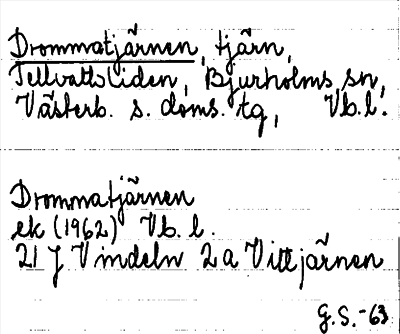 Drommatjärnen, tjärn,
Tellvattsliden, Bjurholms sn,
Västerb. s. doms. tg, Vb. l.
Drommatjärnen
ek (1962) Vb. l.
21 J Vindeln 2a Vittjärnen
G.S. -63